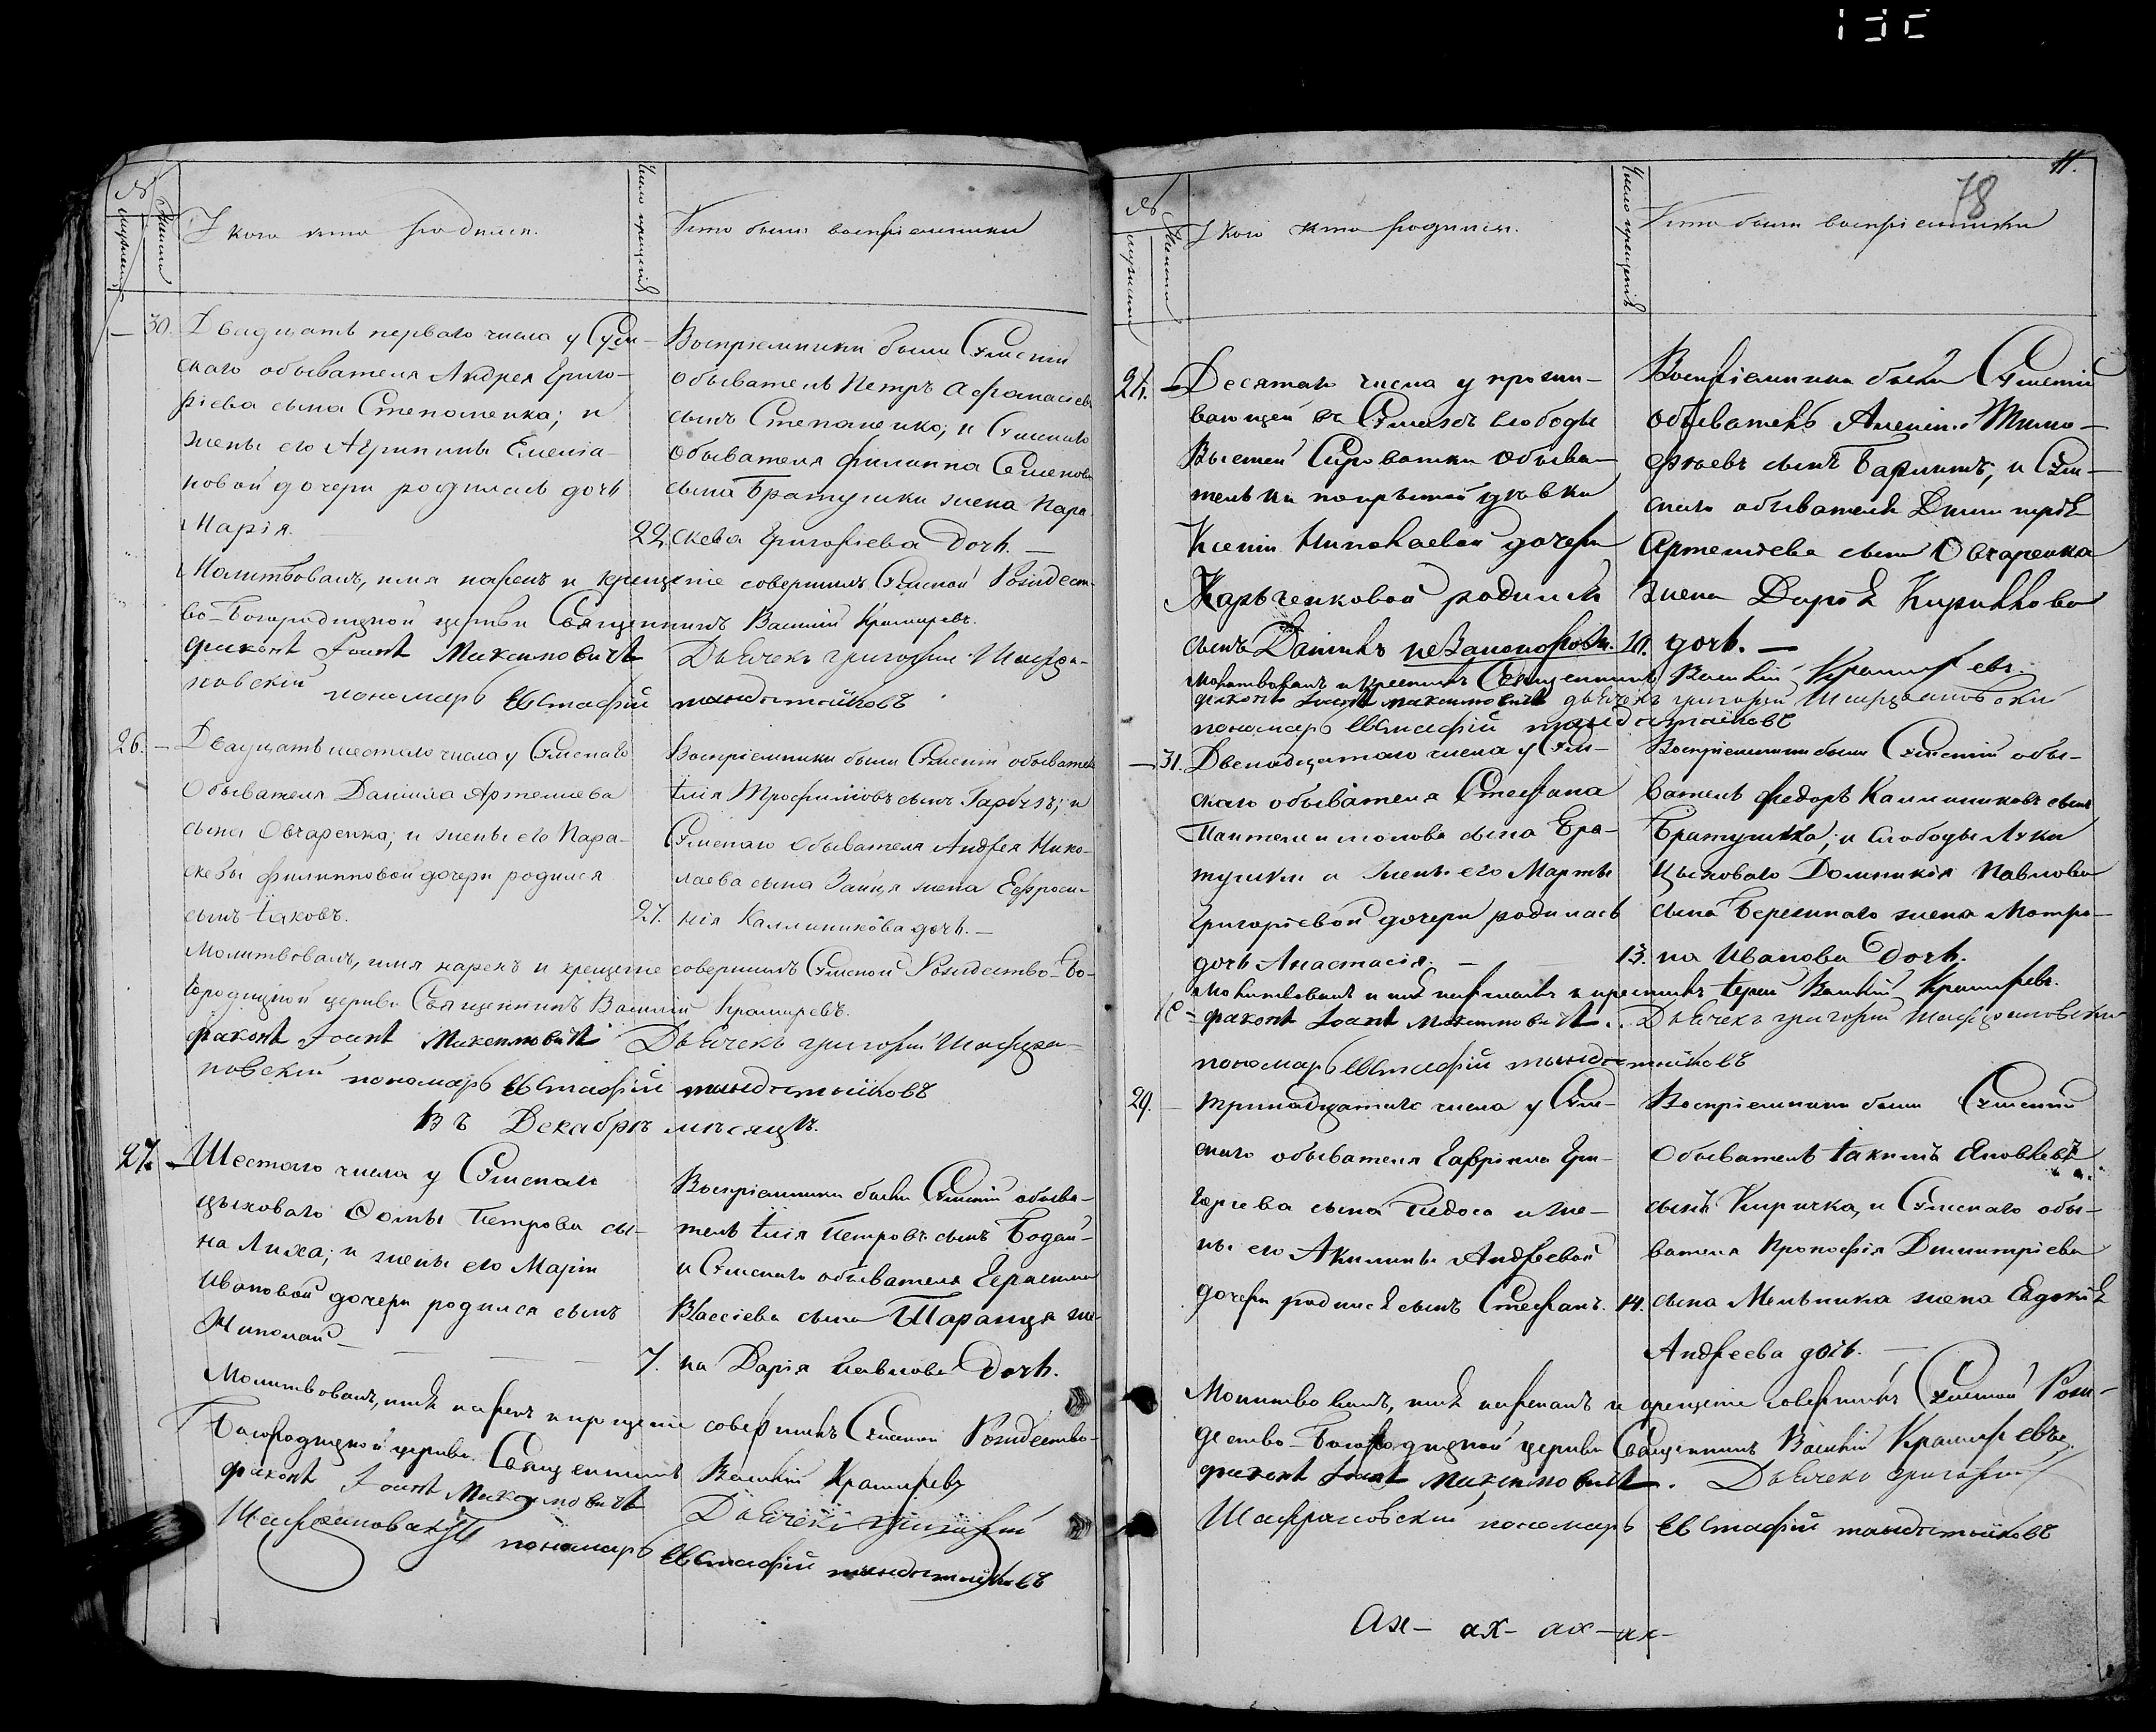 №
мужеска
женска
У кого кто родился.
Число крещенія
Кто были воспріемники
30. Двадцать перваго числа у Сум-
скаго обывателя Андрея Григо-
ріева сына Степаненка; и
жены его Агрипины Емелiа-
новой дочери родилась дочь
Марія.
Воспріемники были Сумскій
обыватель Петръ Афанасіевъ
сынъ Степаненко; и Сумскаго
обывателя Филиппа Семенова
сына Братушки жена Пара-
22. скева Григоріева дочь. —
Молитвовалъ, имя нарекъ и крещеніе совершилъ Сумской Рождест-
во-Богородицкой церкви Священникъ Василій Крамаревъ.
діаконъ Іоанъ Максимовичъ Дьячекъ григорій Шафра-
новскій пономарь Евстафій
26. — Двадцать шестаго числа у Сумскаго
Обывателя Даніила Артемиева
сына Овчаренка; и жены его Пара-
скевы филипповой дочери родился
сынъ Іаковъ.
Воспріемники были Сумскій обыватель
Илія Трофимовъ сынъ Гарбузъ; и
Сумскаго обывателя Андрея Нико-
лаева сына Зайца жена Ефроси-
27. нія Каллиникова дочь. —
Молитвовалъ, имя нарекъ и крещеніе совершилъ Сумской Рождество-Бо-
городицкой церкви Священникъ Василій Крамаревъ.
діаконъ Іоанъ Максимовичъ Дьячекъ григорій Шафра-
новскій пономарь Евстафій
Въ Декабрѣ мѣсяцѣ.
27. — Шестаго числа у Сумскаго
цѣховаго Ѳомы Петрова сы-
на Лиха; и жены его Маріи
Ивановой дочери родился сынъ
Николай —
Воспріемники были Сумскій обыва-
тель Илія Петровъ сынъ Бодай-
и Сумскаго обывателя Герасима
Власіева сына Шаранця же-
7. на Дарія Павлова дочь.
Молитвовалъ, имя нарекъ и крещеніе совершилъ Сумской Рождество-
Богородицкой церкви Священникъ Василій Крамаревъ
діаконъ Іоанъ Максимовичъ Дьячекъ григорій
Шафрановскій пономарь Евстафій
11.
78
№
мужеска
женска
У кого кто родился.
Число крещенія
Кто были воспріемники
28. — Десятаго числа у прожи-
вающей въ Сумахъ слободы
Высшей Сыроватки обыва-
тельки покрытой дѣвки
Ксеніи Николаевой дочери
Харьченковой родился
сынъ Даніилъ незаконорожд.
Воспріемники были Сумскій
обыватель Алексій Тимо-
фѣевъ сынъ и Сум-
скаго обывателя Димитрія
Артеміева сына Овчаренка
жена Дарія Кириллова
10. дочь. —
Молитвовалъ и крестилъ Священникъ Василій Крамаревъ.
діаконъ Іоанъ Максимовичъ дьячекъ григорій Шафрановскій
пономарь Евстафій
— 31. Двенадцатаго числа у Сум-
скаго обывателя Стефана
Пантелеимонова сына Бра-
тушки и жены его Марты
Григоріевой дочери родилась
дочь Анастасія. —
Воспріемники были Сумскій обы-
ватель Федоръ Каллиниковъ сынъ
Братушка; и слободы Луки
Цѣховаго Доминикія Павлова
сына Березинаго жена Матро-
13. на Иванова дочь.
Молитвовалъ и имя нарекалъ и крестилъ Іерей Василій Крамаревъ.
діаконъ Іоанъ Максимовичъ. Дьячекъ григорій Шафрановскій
пономарь Евстафій
29. — тринадцатаго числа у Сум-
скаго обывателя Гавріила Гри-
горіева сына и же-
ны его Акилины Андреевой
дочери родился сынъ Стефанъ.
Воспріемники были Сумскій
Обыватель Іакимъ Яковлевъ
сынъ Киричка, и Сумскаго обы-
вателя Прокофія Димитріева
14. сына Мельника жена Евдокія
Андреева дочь. —
Молитвовалъ, имя нарекалъ и крещеніе совершилъ Сумской Рож-
дество-Богородицкой церкви Священникъ Василій Крамаревъ.
діаконъ Іоанъ Максимовичъ. Дьячекъ григорій
Шафрановскій пономарь Евстафій